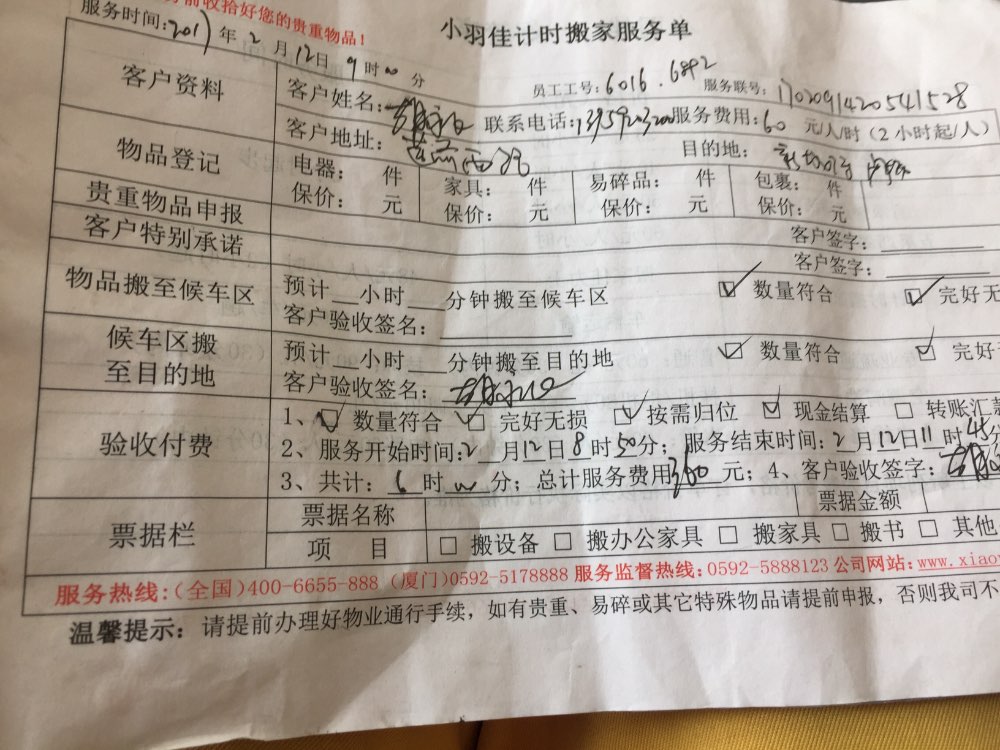 前收拾好您的贵重物品！
小羽佳计时搬家服务单
服务时间：2017年2月12日9时00分
员工工号：6016.6892 服务联号：170209142054 1528
客户资料
客户姓名： 联系电话： 服务费用：60元/人/时（2小时起/人）
客户地址： 目的地：
物品登记
电器： 件 家具： 件 易碎品： 件 包裹： 件
保价： 元 保价： 元 保价： 元 保价： 元
贵重物品申报 客户签字：
客户特别承诺 客户签字：
物品搬至候车区
预计__小时__分钟搬至候车区 ☑ 数量符合 ☑ 完好无
客户验收签名：
候车区搬
至目的地
预计__小时__分钟搬至目的地 ☑ 数量符合 ☑ 完好
客户验收签名：
验收付费
1、☑ 数量符合 ☑ 完好无损 ☑ 按需归位 ☑ 现金结算 □ 转账汇款
2、服务开始时间：2月12日8时50分；服务结束时间：2月12日11时45分
3、共计：6时00分；总计服务费用360元；4、客户验收签字：
票据栏
票据名称 票据金额
项 目 □ 搬设备 □ 搬办公家具 □ 搬家具 □ 搬书 □ 其他
服务热线：（全国）400-6655-888（厦门）0592-5178888 服务监督热线：0592-5888123 公司网站：www.xiao
温馨提示：请提前办理好物业通行手续，如有贵重、易碎或其它特殊物品请提前申报，否则我司不